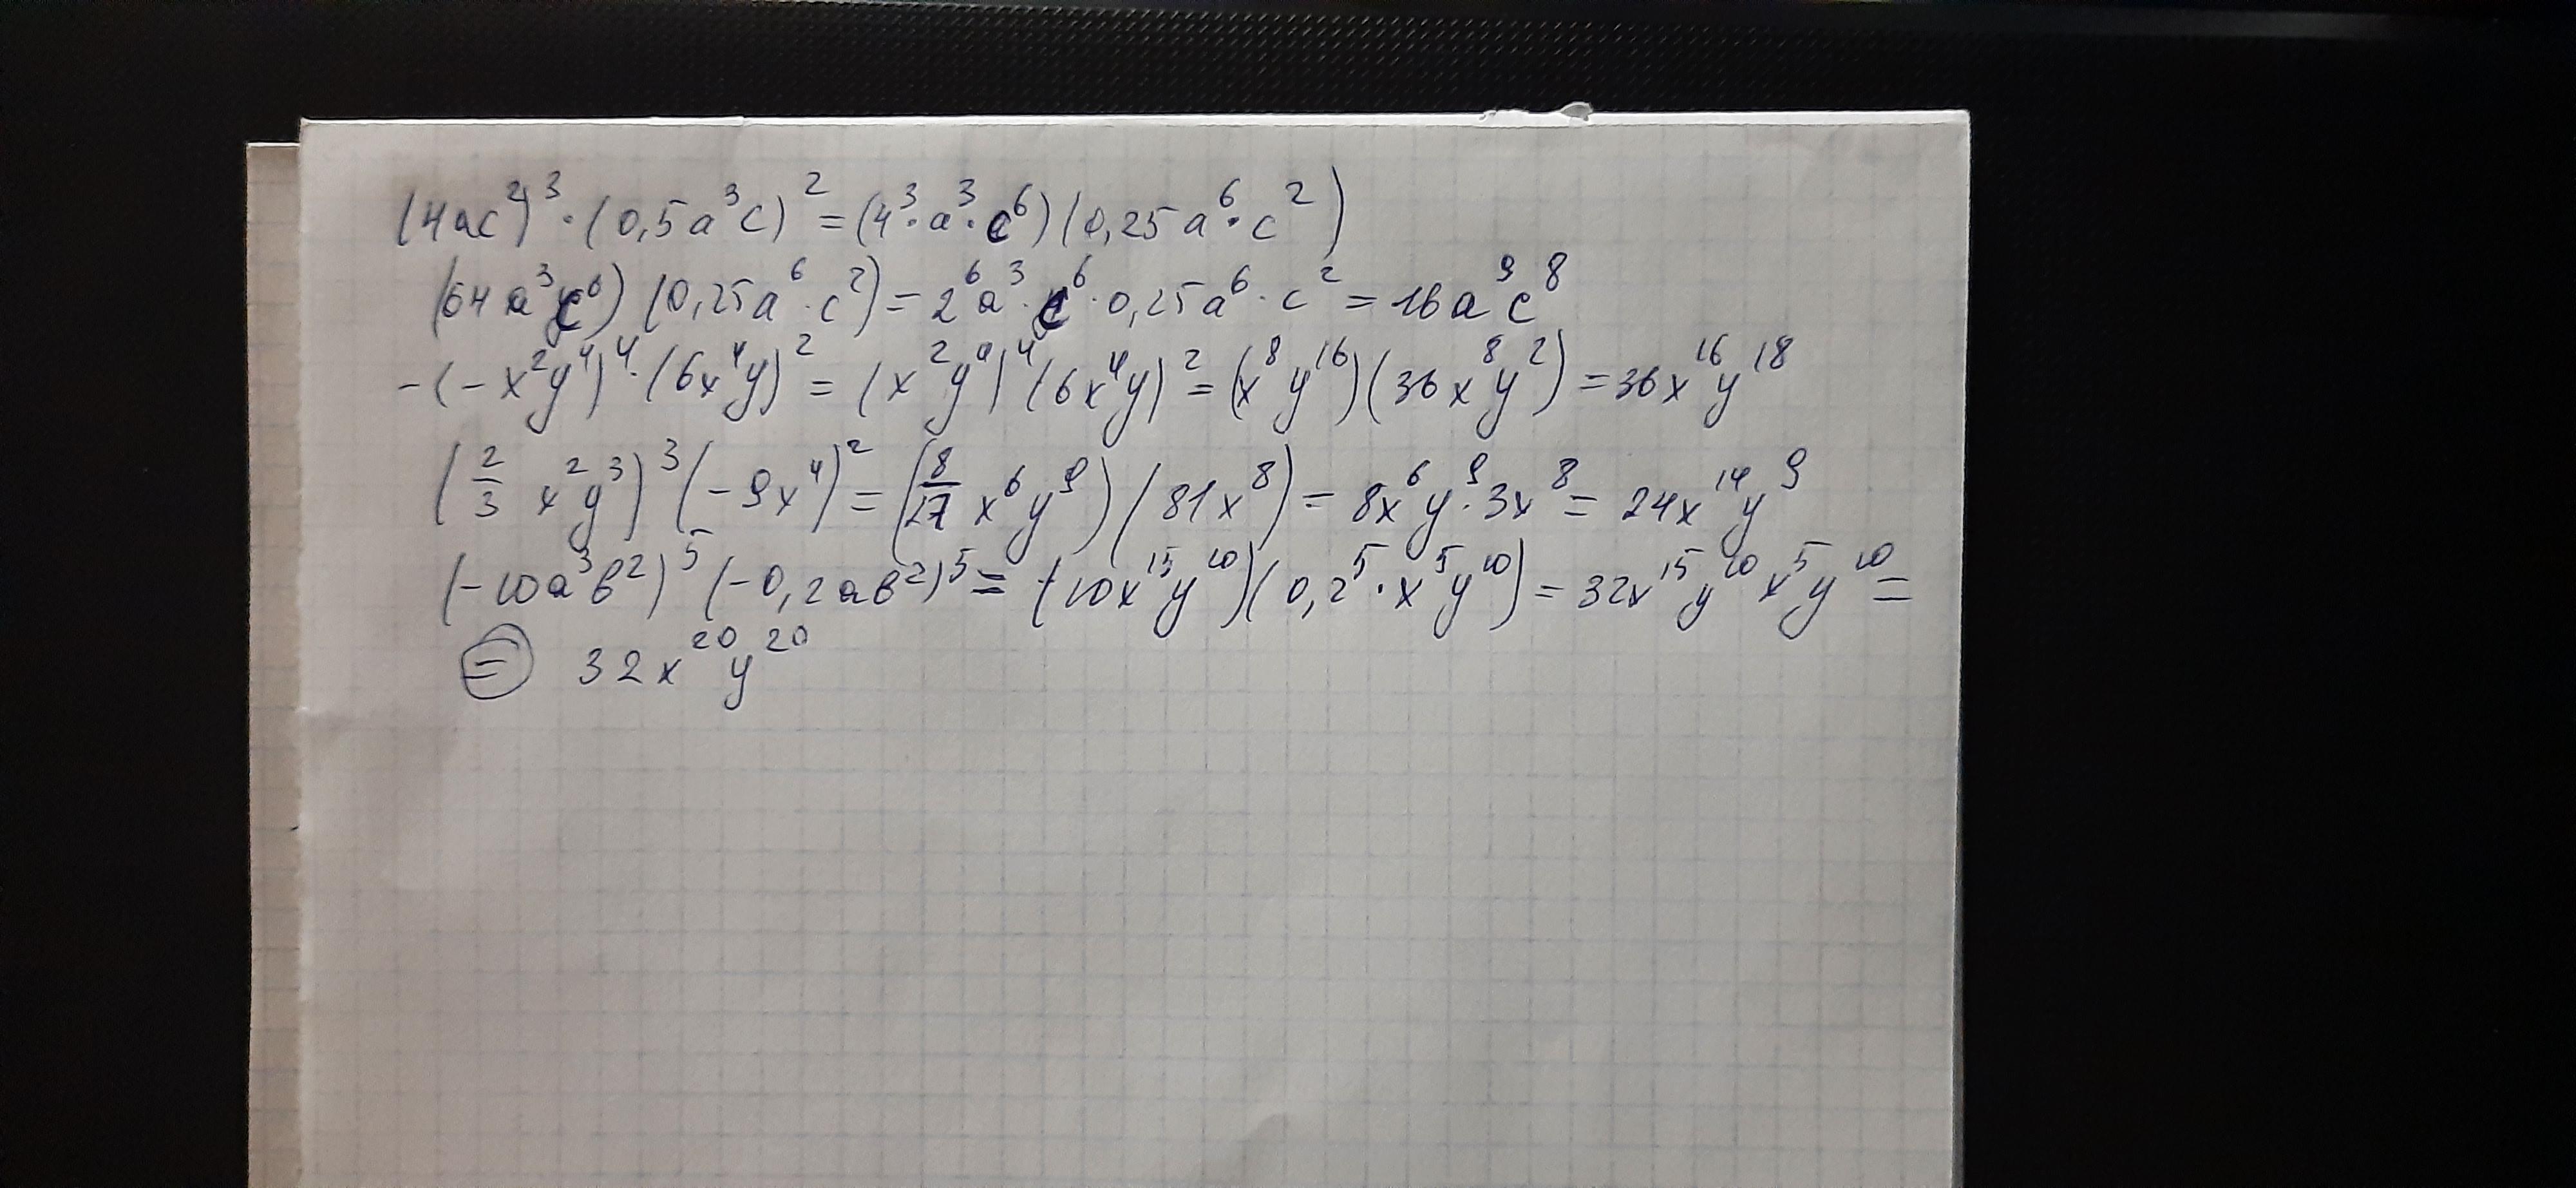 (4ac²)³·(0,5a³c)²=(4³·a³·c⁶)(0,25a⁶·c²)
(64a³c⁶)(0,25a⁶·c²)=2⁶a³·c⁶·0,25a⁶·c²=16a⁹c⁸
-(-x²y⁴)⁴·(6x⁴y)²=(x²y⁴)⁴(6x⁴y)²=(x⁸y¹⁶)(36x⁸y²)=36x¹⁶y¹⁸
(2/3 x²y³)³(-9x⁴)²=(8/27 x⁶y⁹)(81x⁸)=8x⁶y⁹·3x⁸=24x¹⁴y⁹
(-10a³b²)⁵(-0,2ab²)⁵=(10x¹⁵y¹⁰)(0,2⁵·x⁵y¹⁰)=32x¹⁵y¹⁰x⁵y¹⁰=
= 32x²⁰y²⁰